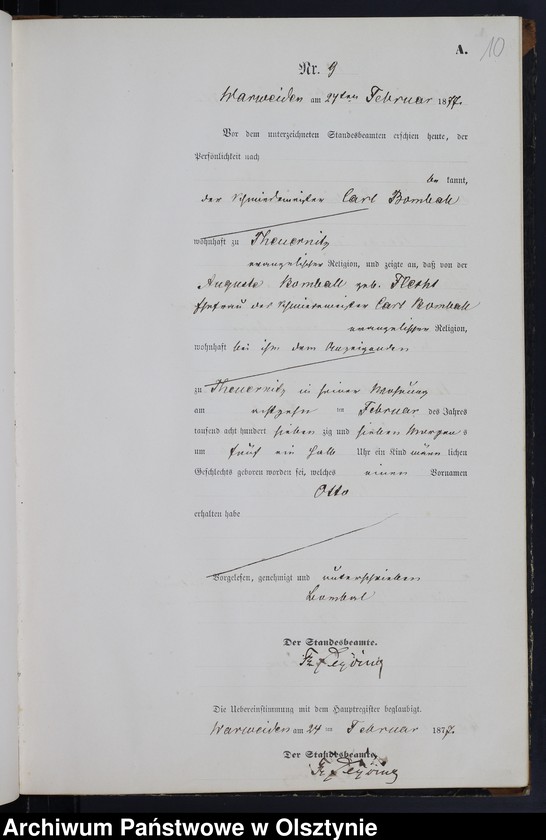 A.
10
Nr. 9
Warweiden am 24ten Februar 1877.
Vor dem unterzeichneten Standesbeamten erschien heute, der
Persönlichkeit nach
be kannt,
der Schmiedemeister Carl Bomball
wohnhaft zu Theuernitz
evangelischer Religion, und zeigte an, daß von der
Auguste Bomball geb.
Ehefrau des Schmiedemeister Carl Bomball
evangelischer Religion,
wohnhaft bei ihm dem Anzeigenden
zu Theuernitz in seiner Wohnung
am achtzehn ten Februar des Jahres
tausend acht hundert sieben zig und sieben Morgen s
um fünf ein halb Uhr ein Kind männ lichen
Geschlechts geboren worden sei, welches einen Vornamen
Otto
erhalten habe
Vorgelesen, genehmigt und unterschrieben
Bombal
Der Standesbeamte.
Die Uebereinstimmung mit dem Hauptregister beglaubigt.
Warweiden am 24 ten Februar 1877.
Der Standesbeamte.
Archiwum Państwowe w Olsztynie